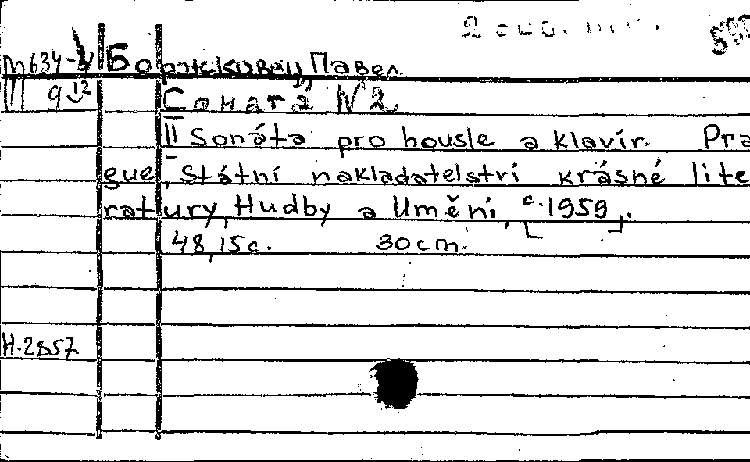 М634-V Боржковец, Павел
9 12 Соната N 2
II Sonáta pro housle a klavír. Pra
gue, Státní nakladatelství krásné lite
ratury, Hudby a Umění, c.1959.
48, 15c. 30cm.
Н.2857